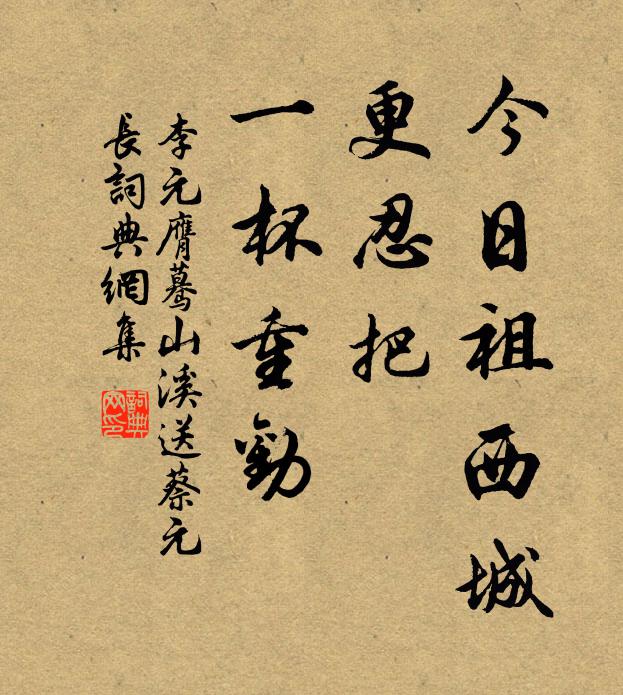 今日祖西城
更忍把
一杯重勸
李元膺驀山溪送蔡元
長詞典網集
詞典
网印